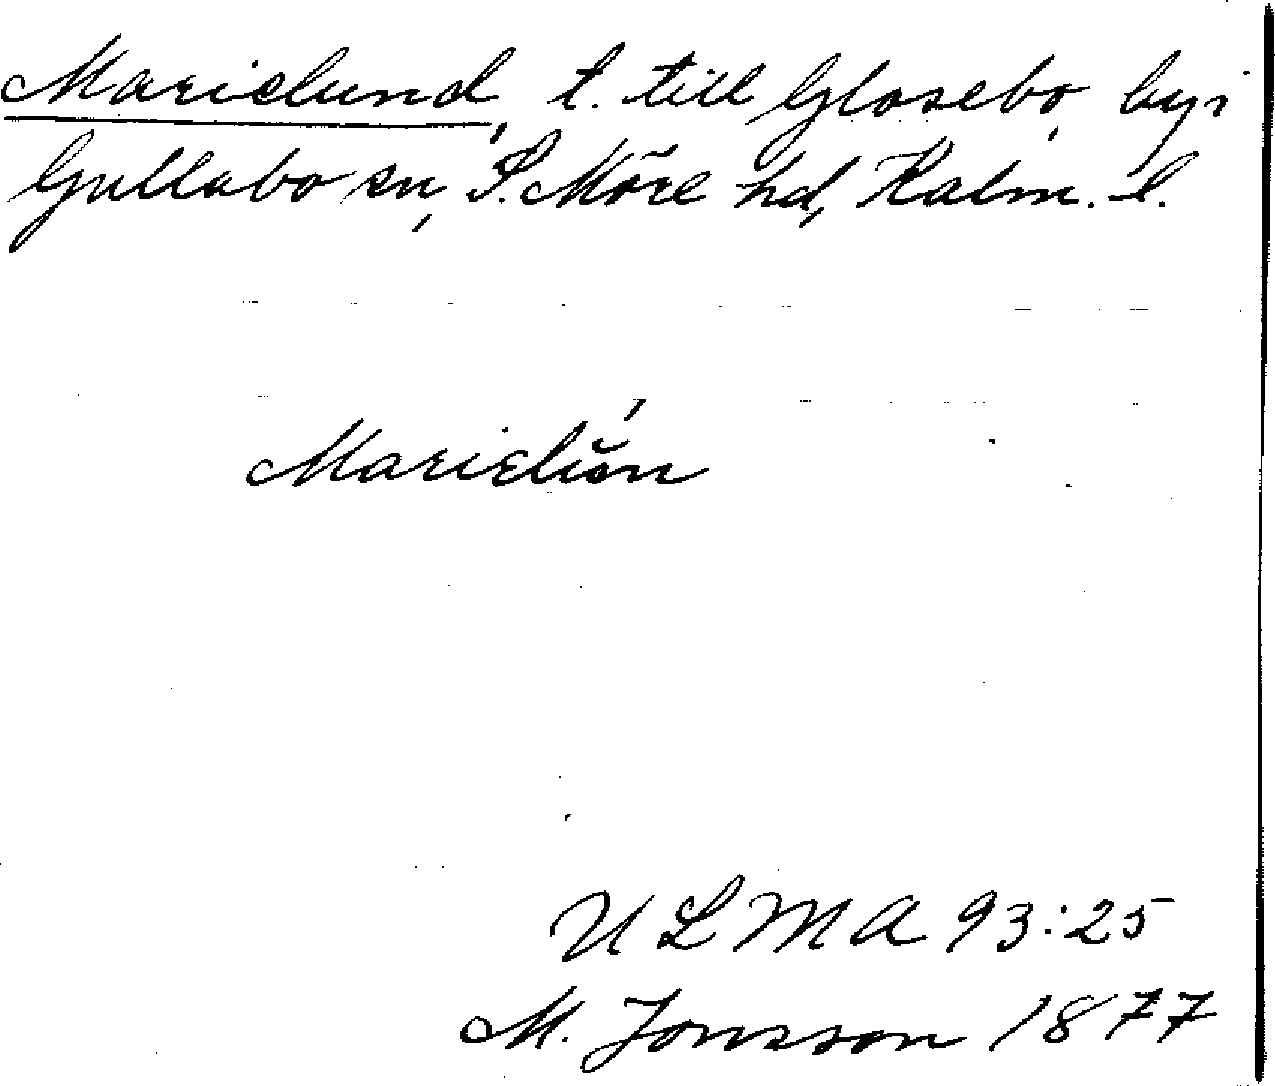 Marielund, t. till Glosebo, by i
Gullabo sn, S. Möre hd, Kalm. l.
Marielŏ́n
ULMA 93:25
M. Jonsson 1877